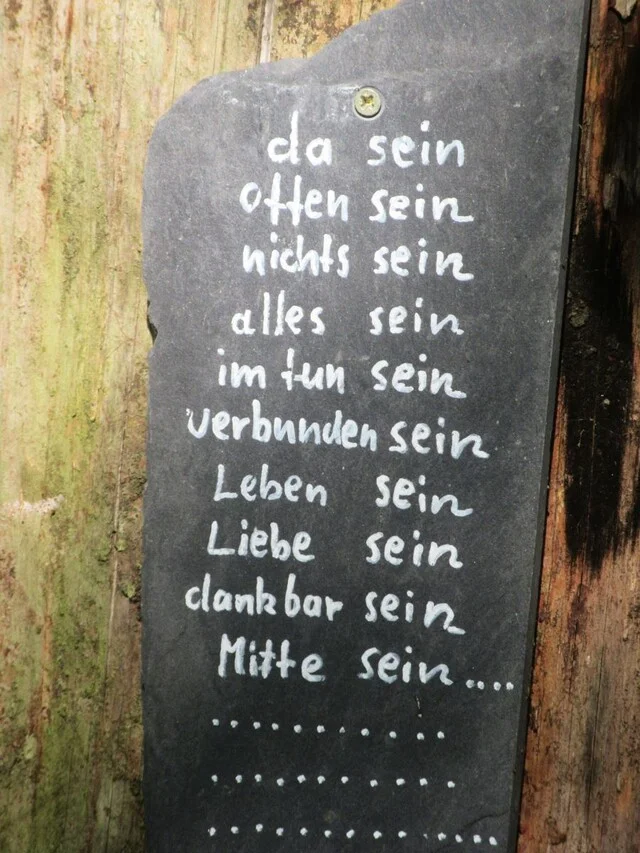 da sein
offen sein
nichts sein
alles sein
im tun sein
verbunden sein
Leben sein
Liebe sein
dankbar sein
Mitte sein....
...........
...........
..............